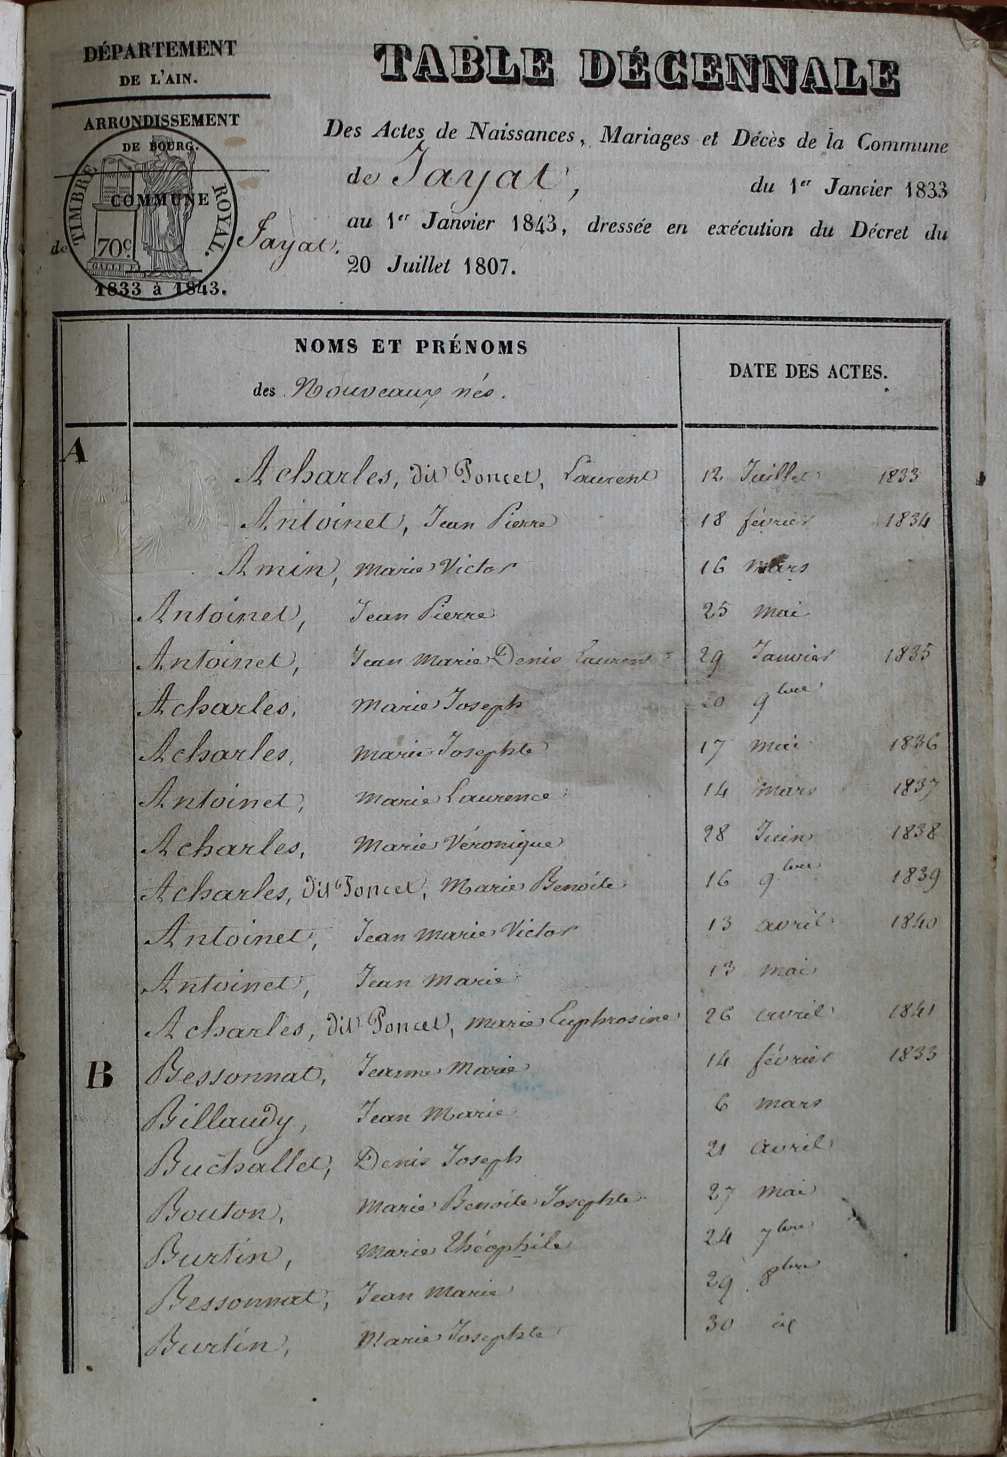 DÉPARTEMENT
DE L'AIN.
ARRONDISSEMENT
DE BOURG.
COMMUNE
de Jayat.
1833 à 1843.
TIMBRE ROYAL.
70c.
TABLE DÉCENNALE
Des Actes de Naissances, Mariages et Décès de la Commune
de Jayat, du 1er Janvier 1833
au 1er Janvier 1843, dressée en exécution du Décret du
20 Juillet 1807.
NOMS ET PRÉNOMS
des Nouveaux nés.
DATE DES ACTES.
A
Acharles, dit Poncet, Laurent 12 Juillet 1833
Antoinet, Jean Pierre 18 février 1834
Amin, Marie Victor 16 mars
Antoinet, Jean Pierre 25 mai
Antoinet, Jean Marie Denis Laurent 29 Janvier 1835
Acharles, Marie Joseph 20 9bre
Acharles, Marie Josephte 17 mai 1836
Antoinet, Marie Laurence 14 mars 1837
Acharles, Marie Véronique 28 Juin 1838
Acharles, dit Poncet, Marie Benoite 16 9bre 1839
Antoinet, Jean Marie Victor 13 avril 1840
Antoinet, Jean Marie 13 mai
Acharles, dit Poncet, Marie Euphrosine 26 avril 1841
B Bessonnat, Jeanne Marie 14 février 1833
Billaudy, Jean Marie 6 mars
Buchallet, Denis Joseph 21 avril
Bouton, Marie Benoite Josephte 27 mai
Burtin, Marie Théophile 24 7bre
Bessonnat, Jean Marie 29 8bre
Burtin, Marie Josephte 30